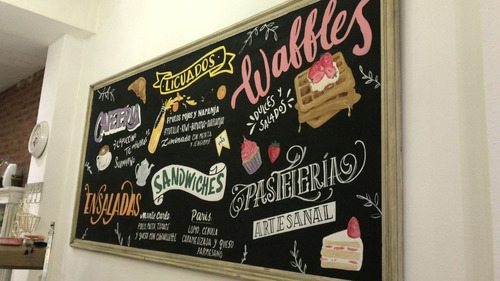 LICUADOS
FRUTOS ROJOS Y NARANJA
FRUTILLA-KIWI-BANANA-NARANJA
Limonada CON MENTA
Y JENGIBRE
Waffles
DULCES Y
SALADOS
CAFETERIA
CAPUCCINO
SUBMARINO
SANDWICHES
ENSALADAS
Monte Carlo
Paris
LOMO, CEBOLLA
CARAMELIZADA Y QUESO
PARMESANO
PASTELERÍA
ARTESANAL